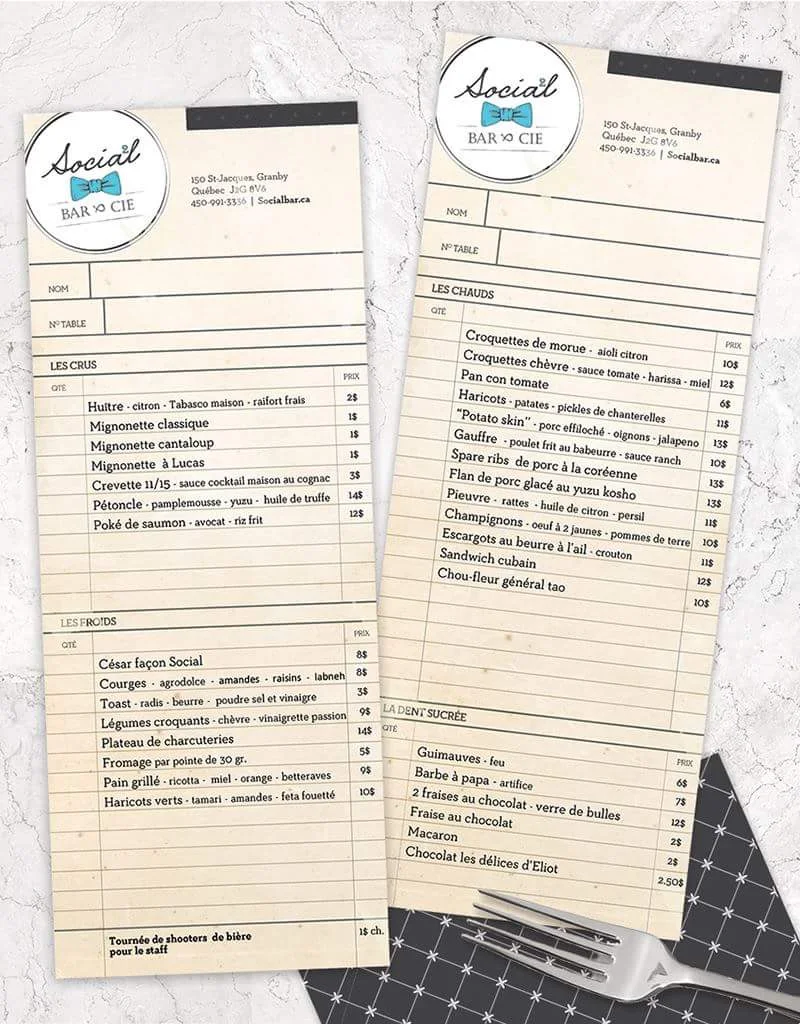 Social
BAR & CIE
150 St-Jacques, Granby
Québec J2G 8V6
450-991-3336 | Socialbar.ca
NOM
Nº TABLE
LES CRUS
QTÉ PRIX
Huître - citron - Tabasco maison - raifort frais 2$
Mignonette classique 1$
Mignonette cantaloup 1$
Mignonette à Lucas 1$
Crevette 11/15 - sauce cocktail maison au cognac 3$
Pétoncle - pamplemousse - yuzu - huile de truffe 14$
Poké de saumon - avocat - riz frit 12$
LES FROIDS
QTÉ PRIX
César façon Social 8$
Courges - agrodolce - amandes - raisins - labneh 8$
Toast - radis - beurre - poudre sel et vinaigre 3$
Légumes croquants - chèvre - vinaigrette passion 9$
Plateau de charcuteries 14$
Fromage par pointe de 30 gr. 5$
Pain grillé - ricotta - miel - orange - betteraves 9$
Haricots verts - tamari - amandes - feta fouetté 10$
Tournée de shooters de bière 1$ ch.
pour le staff
Social
BAR & CIE
150 St-Jacques, Granby
Québec J2G 8V6
450-991-3336 | Socialbar.ca
NOM
Nº TABLE
LES CHAUDS
QTÉ PRIX
Croquettes de morue - aioli citron 10$
Croquettes chèvre - sauce tomate - harissa - miel 12$
Pan con tomate 6$
Haricots - patates - pickles de chanterelles 11$
"Potato skin" - porc effiloché - oignons - jalapeno 13$
Gauffre - poulet frit au babeurre - sauce ranch 10$
Spare ribs de porc à la coréenne 13$
Flan de porc glacé au yuzu kosho 13$
Pieuvre - rattes - huile de citron - persil 11$
Champignons - oeuf à 2 jaunes - pommes de terre 10$
Escargots au beurre à l'ail - crouton 11$
Sandwich cubain 12$
Chou-fleur général tao 10$
LA DENT SUCRÉE
QTÉ PRIX
Guimauves - feu 6$
Barbe à papa - artifice 7$
2 fraises au chocolat - verre de bulles 12$
Fraise au chocolat 2$
Macaron 2$
Chocolat les délices d'Eliot 2.50$